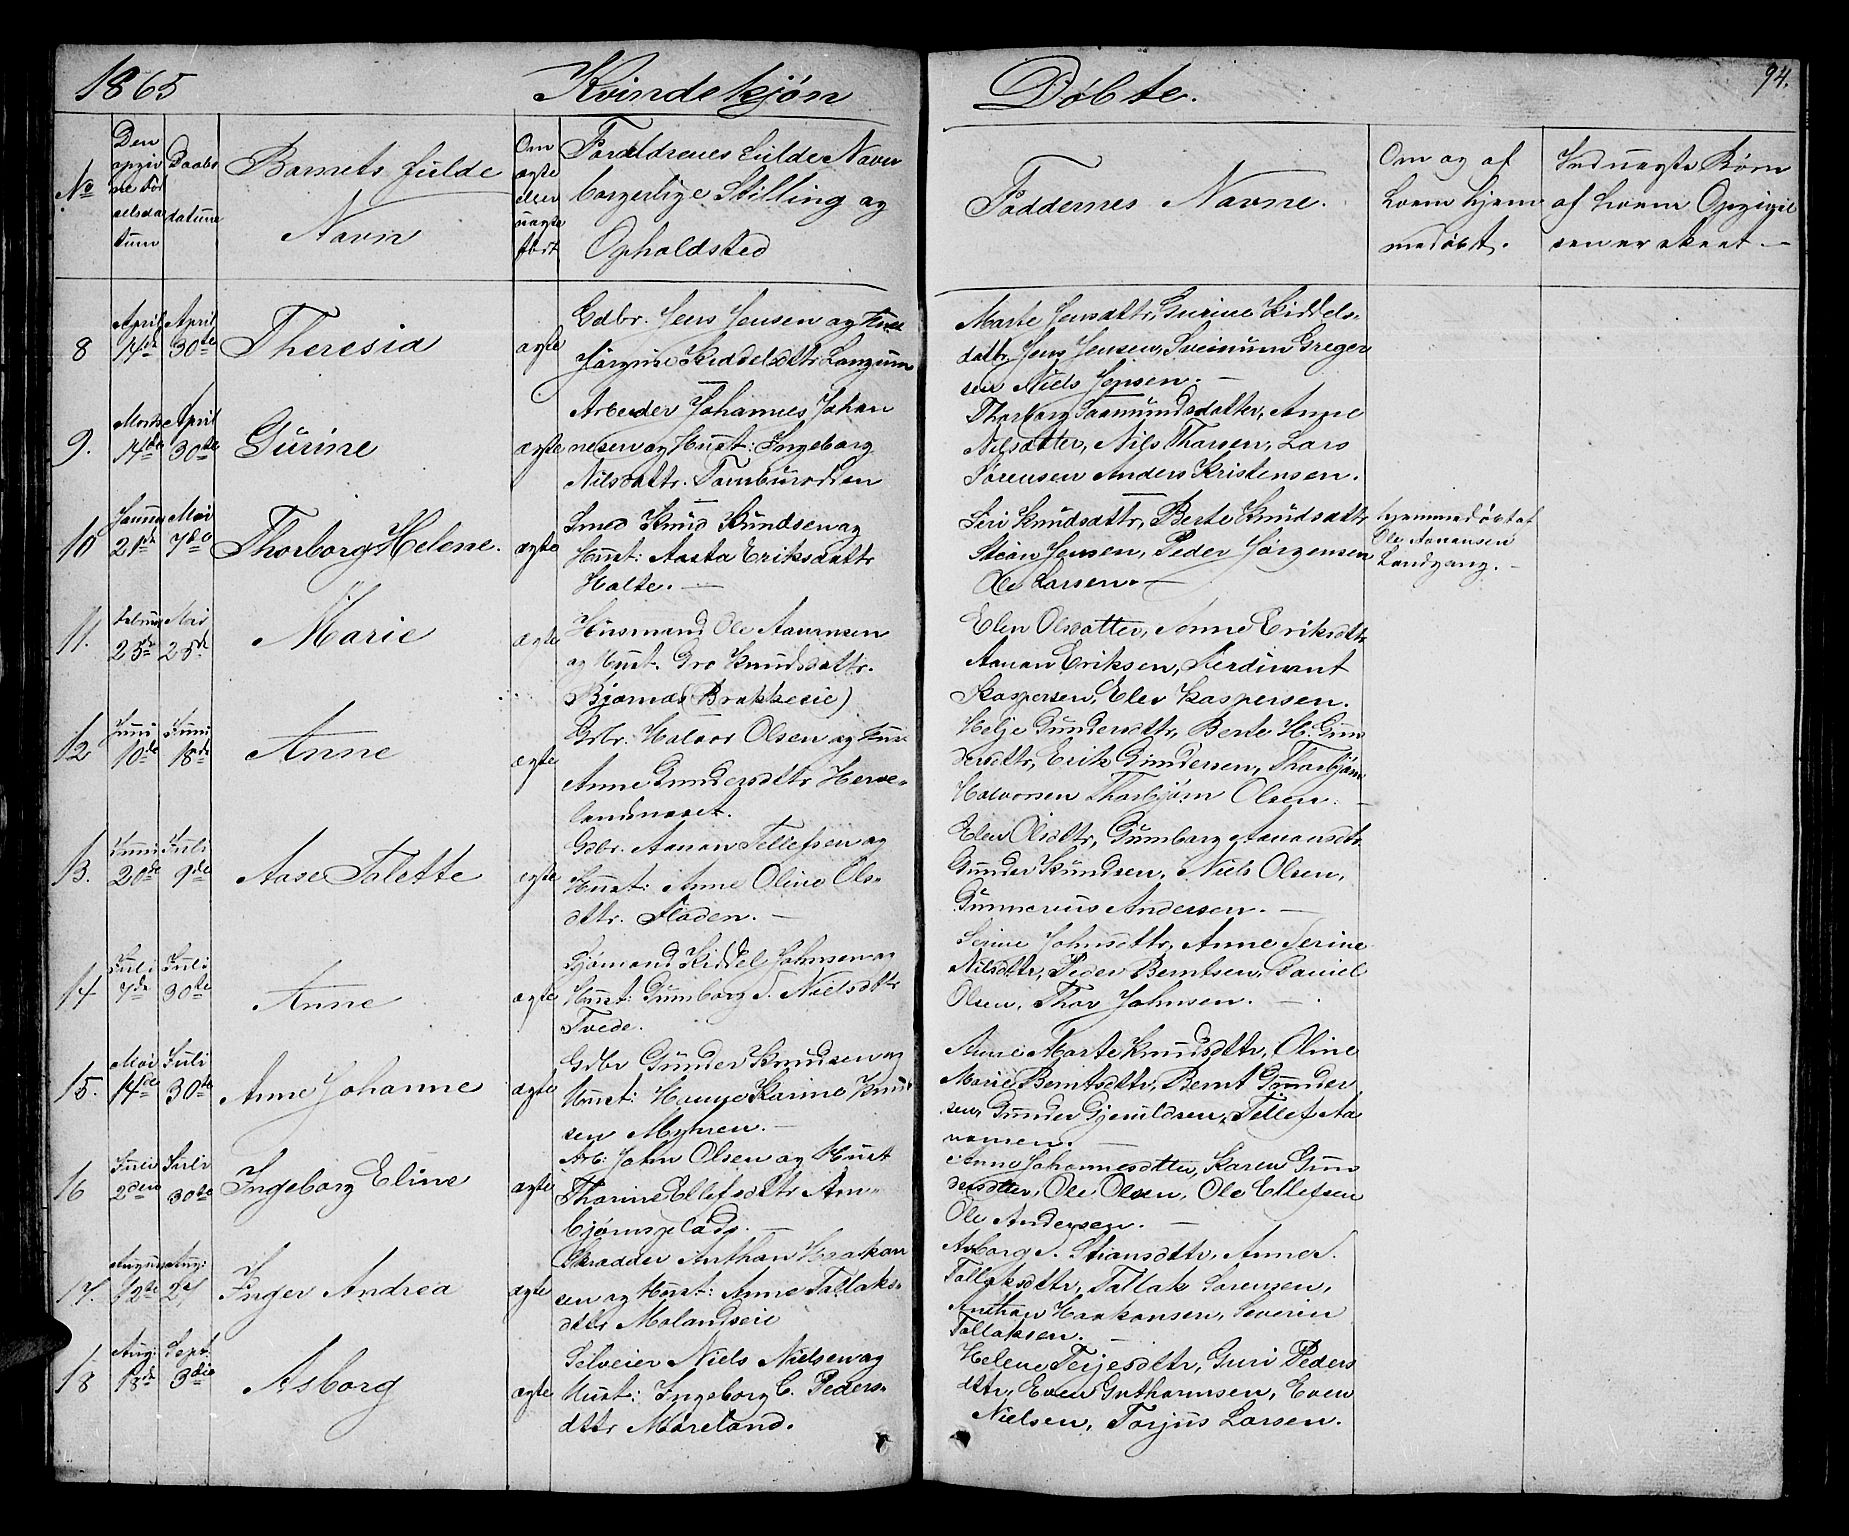 1865 Kvindekjøn Døbte. 94.
No
Den opgivne Fødselsdatum
Daabsdatum
Barnets fulde Navn
Om ægte eller uægte født
Forældrenes fulde Navn
borgerlige Stilling og
Opholdsted
Faddernes Navne.
Om og af
hvem hjem
medøbt.
Ind uægte Børn
af hvem Opgivel
sen er skeet. —
8 April 14de April 30te Theresia ægte
Gdbr. Jens Jensen og
Jørgine Kiddelsdttr Langum
Marte Jensdttr, Gurine Kiddels-
dattr, Jens Jensen, Sveinum Greger
sen Niels Jensen. —
9. Marts 14de April 30te Gurine ægte
Arbeider Johannes Johan
nesen og Hust: Ingeborg
Nilsdattr.
Thorborg Aamundsdatter, Anne
Nilsdatter, Nils Thorsen, Lars
Sørensen Anders Kristensen.
10 Januar 21de Mai 7de Thorborg Helene. ægte
Smed Knud Knudsen og
Hust: Aasta Eriksdattr
Holte. —
Siri Knudsdttr, Berte Knudsdattr
Steân Jensen, Peder Jørgensen
Ole Larsen. —
hjemmedøbt af
Ole Aanonsen
Landgang. —
11. Februar 25de Mai 25de Marie ægte
Husmand Ole Aanensen
og Hust. Gro Knudsdattr.
Bjørnaas (Brakkeeie)
Elen Olsdatter, Anne Eriksdttr
Aanon Eriksen, Ferdinant
Kaspersen, Elev Kaspersen.
12 Juni 10de Juni 18de Anne ægte
Grbr. Halvor Olsen og
Anne Gundersdttr Herve-
landmoset.
Helje Gundersdttr, Berte H. Gun
dersdttr, Erik Gundersen, Thorbjørn
Halvorsen Thorbjørn Olsen. —
13. Juni 20de Juli 9de Aase Talette ægte
Gdbr. Aanon Tellefsen og
Hust: Anne Oline Ols-
dttr. Fladen. —
Elen Olsdttr, Gumborg Aanonsdttr
Gunder Knudsen, Niels Olsen,
Gunnerius Andersen. —
14 Juli 7de Juli 30te Anne ægte
Sjømand Kiddel Johnsen og
Hust: Gunborg S. Nielsdttr
Tvede.
Serine Johnsdttr, Anne Serine
Nilsdttr, Peder Berntsen, Daniel
Olsen, Thor Johnsen. —
15. Mai 14de Juli 30te Anne Johanne ægte
Grbr Gunder Knudsen og
Hust: Hanne Karine Knud
sen Myhren. —
Anne Marte Knudsdttr, Oline
Marie Berntsdttr, Bernt Gunder
sen, Gunder Gjeruldsen, Tellef Aa
nonsen. —
16 Juli 2den Juli 30te Ingeborg Eline ægte
Arb: John Olsen og Hust
Tharine Ellefsdttr Arn-
bjørnsplads. —
Anne Johannesdtter, Karen Gun
dersdtter, Ole Olsen, Ole Ellefsen
Ole Andersen. —
17. August 12te Aug: 27 Inger Andrea ægte
Skrædder Anthon Haakon
sen og Hust: Anne Tallaks-
dttr Molandseie
Asborg S. Stiansdttr, Anne S.
Tallaksdttr, Tallak Sørensen,
Anthon Haakonsen, Severin
Tallaksen. —
18 Aug: 18de Sept. 3die Asborg ægte
Selveier Niels Nielsen og
Hust: Ingeborg C. Peders-
dttr Møreland.
Helene Terjesdttr, Guri Peders
dttr, Even Guthormsen, Even
Nielsen, Torjus Larsen.